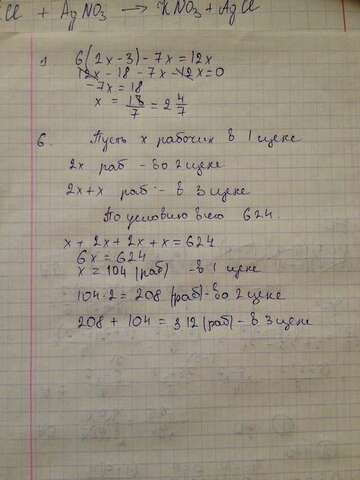 Cl + AgNO3 → KNO3 + AgCl
1 6(2x-3)-7x=12x
12x-18-7x-12x=0
-7x=18
x = 18/7 = 2 4/7
6. Пусть x рабочих в 1 цехе
2x раб - во 2 цехе
2x+x раб - в 3 цехе
По условию всего 624
x+2x+2x+x=624
6x=624
x=104 (раб) -в 1 цехе
104·2=208 (раб)-во 2 цехе
208+104=312 (раб)-в 3 цехе